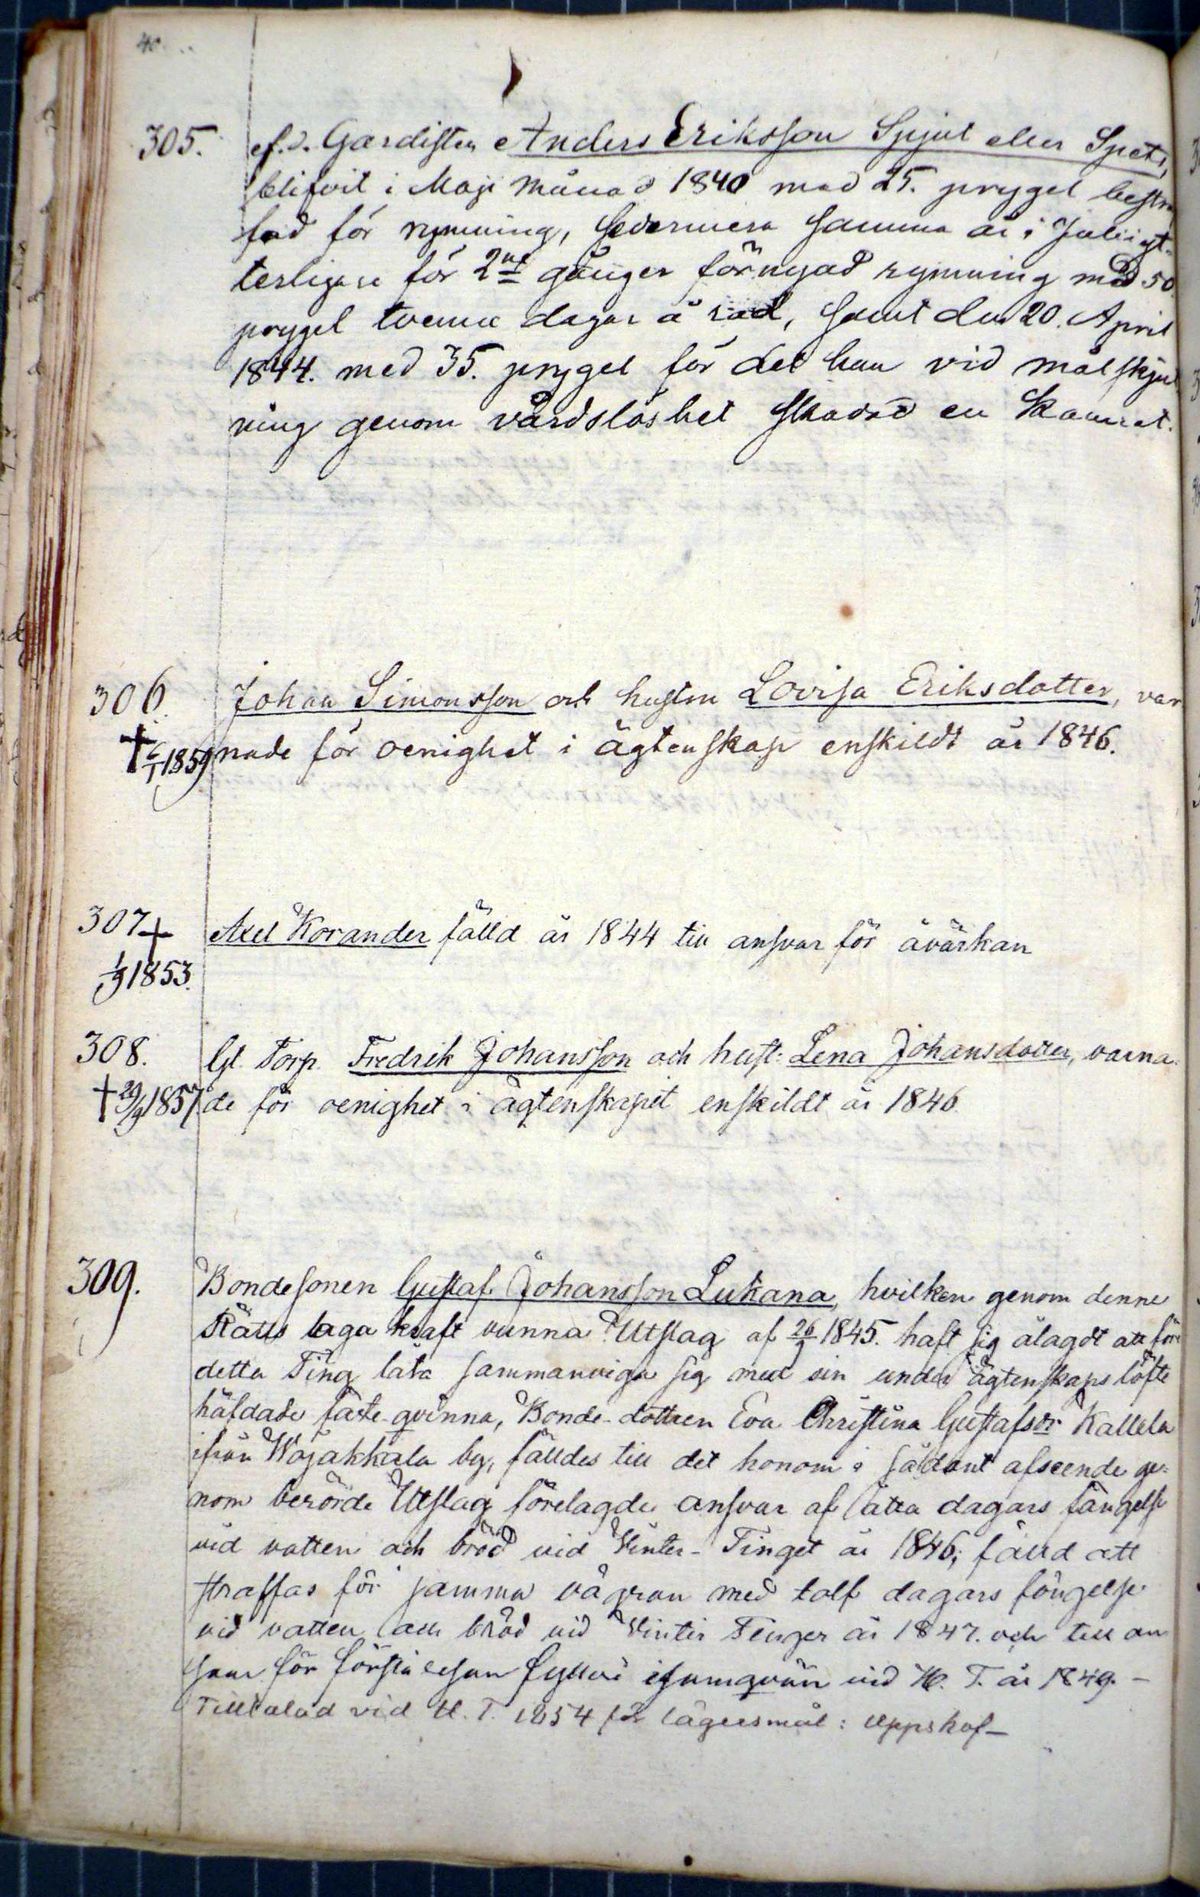 40
305. ef. d. Gardisten Anders Eriksson Spjut eller Spets,
blifvit i Maji Månad 1840 med 25. prygel bestra
fad för rymning, sedermera samma år i Julii yt-
terligare för 2ne gånger förnyad rymning med 50
prygel tvenne dagar å rad, samt den 20. April
1844. med 35. prygel för det han vid målskjut
ning genom vårdslöshet skadat en Kamrat.
306. Johan Simonsson och hustru Lovisa Eriksdotter, var
† 1859 nade för oenighet i ägtenskap enskildt år 1846.
307 † Axel Korander fälld år 1844 till ansvar för åvärkan
1/9 1853.
308. Torp. Fredrik Johansson och hust: Lena Johansdotter, varna-
† 29/9 1857 de för oenighet i ägtenskapet enskildt år 1846
309. Bondesonen Gustaf Johansson Lukana, hvilken genom denne
Rätts laga kraft vunna Utslag af 1845. haft sig ålagdt att före
detta Ting låta sammanviga sig med sin under ägtenskaps löfte
häfdade fäste-qvinna, Bonde-dottren Eva Christina Gustafsdr Kallela
ifrån Wojakkala by, fälldes till det honom i sådant afseende ge-
nom berörde Utslag förelagde ansvar af åtta dagars fängelse
vid vatten och bröd vid Vinter-Tinget år 1846; fälld att
straffas för samma vägran med tolf dagars fängelse
vid vatten och bröd vid Vinter Tinget år 1847. och till an
svar för första resan fylleri vid H. T. år 1849. -
Tilltalad vid H. T. 1854 för lägersmål: Uppskof-